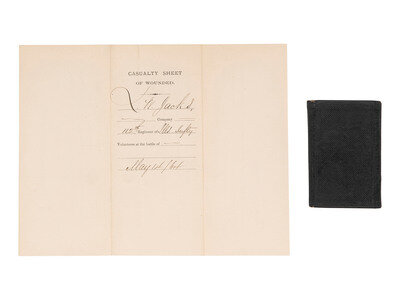 CASUALTY SHEET
OF WOUNDED.
Company
Regiment of Ills Infty
Volunteers at the battle of
May 14/64